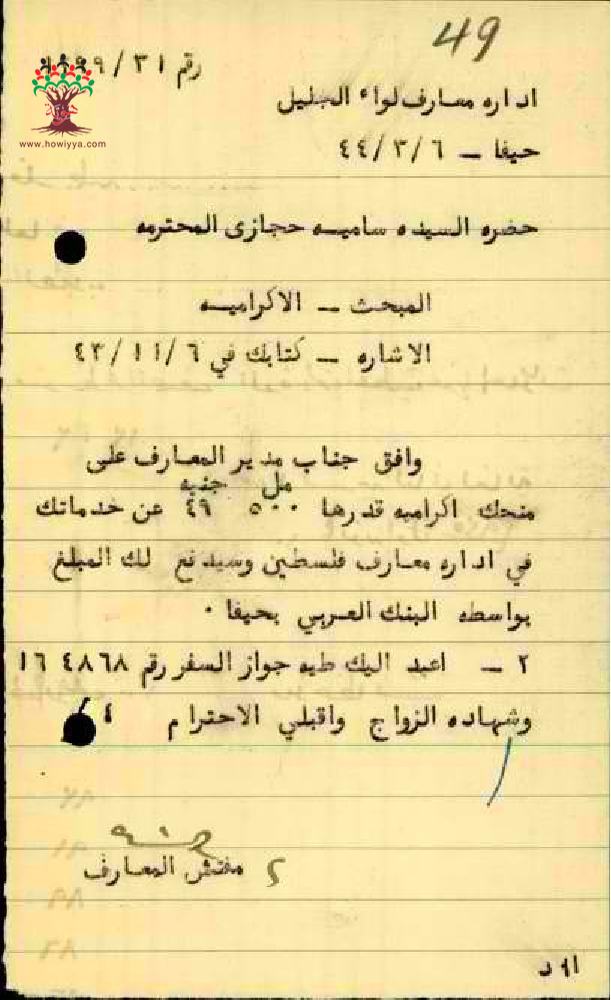 49
رقم ٣١/
www.howiyya.com
اداره معارف لواء الجليل
حيفا ــ ٤٤/٣/٦
حضره السيده ساميه حجازى المحترمه
المبحث ــ الاكراميه
الاشاره ــ كتابك في ٤٣/١١/٦
وافق جناب مدير المعارف على
مل جنيه
منحك اكراميه قدرها ٥٠٠ ٤٩ عن خدماتك
في اداره معارف فلسطين وسيدفع لك المبلغ
بواسطه البنك العربي بحيفا ٠
٢ ــ اعيد اليك طيه جواز السفر رقم ١٦٤٨٦٨
وشهاده الزواج واقبلي الاحترام ،
مفتش المعارف